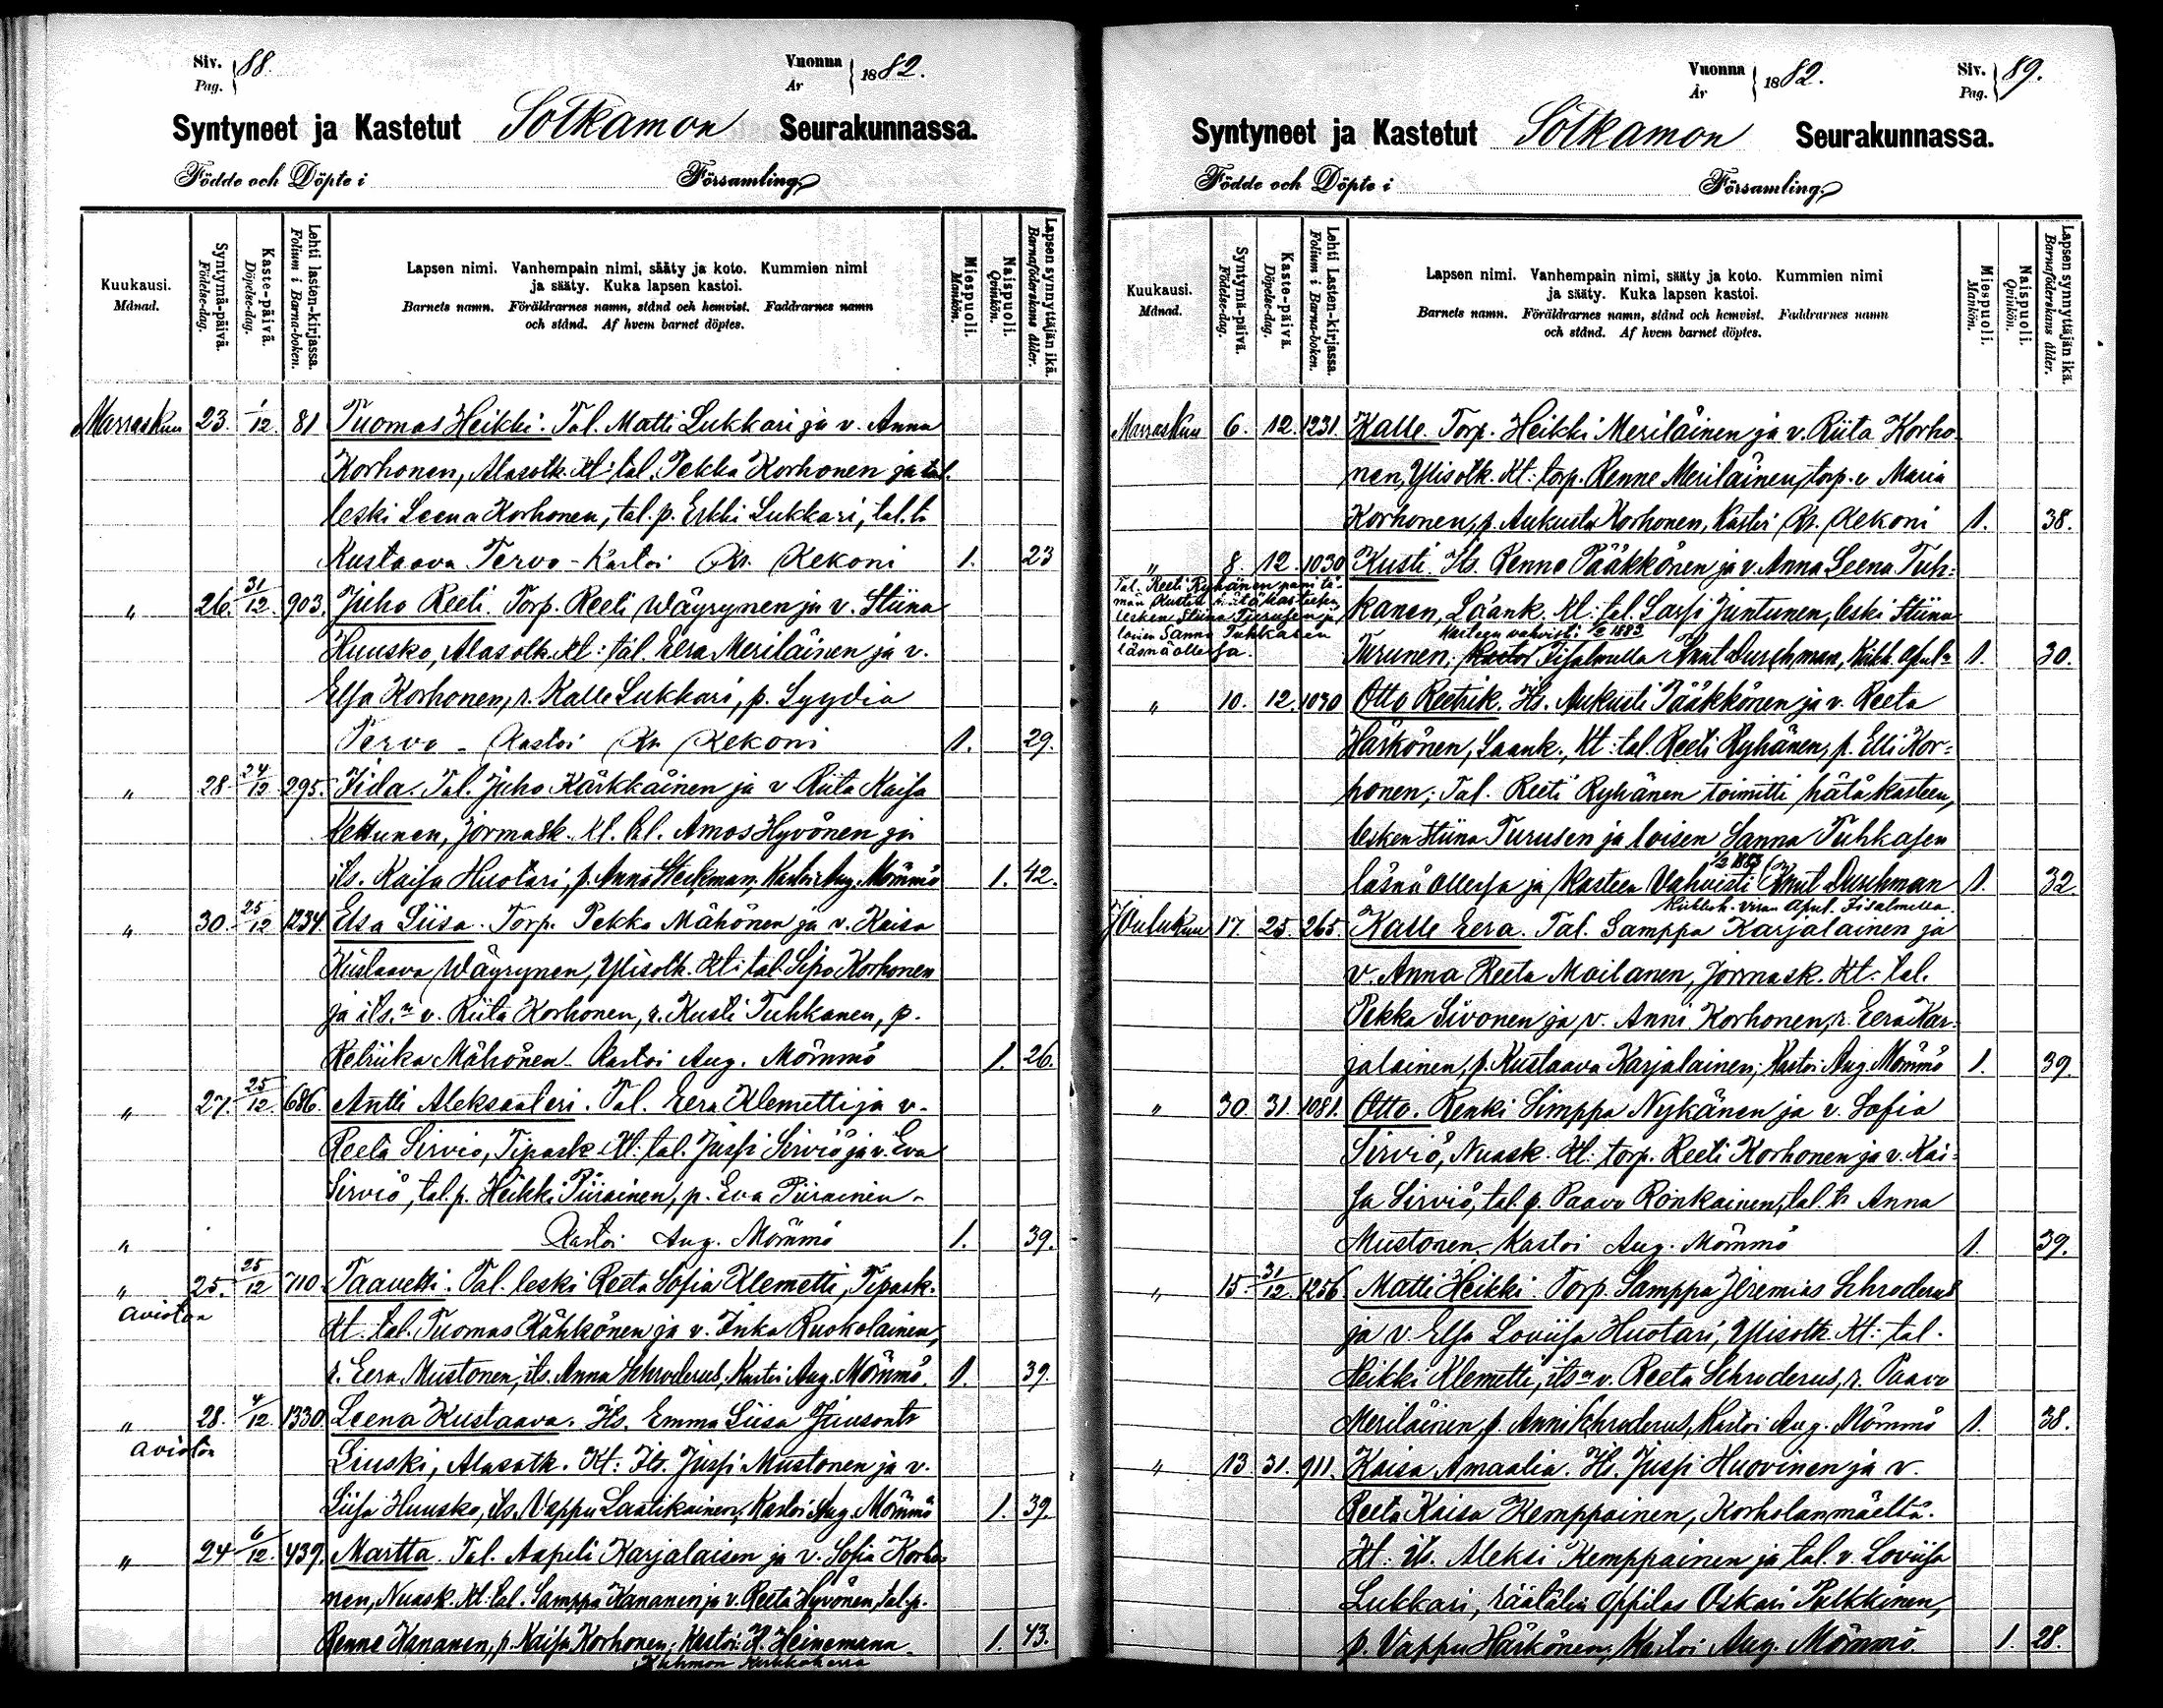 Siv. 88.
Pag.
Vuonna 1882.
År
Syntyneet ja Kastetut Sotkamon Seurakunnassa.
Födde och Döpte i Församling.
Kuukausi.
Månad.
Syntymä-päivä.
Födelse-dag.
Kaste-päivä.
Döpelse-dag.
Lehti lasten-kirjassa.
Folium i Barna-boken.
Lapsen nimi. Vanhempain nimi, sääty ja koto. Kummien nimi
ja sääty. Kuka lapsen kastoi.
Barnets namn. Föräldrarnes namn, stånd och hemvist. Faddrarnes namn
och stånd. Af hvem barnet döptes.
Miespuoli.
Mankön.
Naispuoli.
Qvinkön.
Lapsen synnyttäjän ikä.
Barnaföderskans ålder.
Marraskuu 23. 1/12 81 Tuomas Heikki. Tal. Matti Lukkari ja v. Anna
Korhonen, Alasotk. Kt: tal. Pekka Korhonen ja tal.
leski Leena Korhonen, tal. p. Erkki Lukkari, tal. t:
Kustaava Tervo - Kastoi Kr. Rekoni 1. 23
" 26. 31/12 903. Juho Reeti. Torp. Reeti Wäyrynen ja v. Stiina
Huusko, Alasotk. Kt: tal. Eera Meriläinen ja v.
Elsa Korhonen, r. Kalle Lukkari, p. Lyydia
Tervo - Kastoi Kr. Rekoni 1. 29.
" 28. 24/12 295. Iida. Tal. Juho Kärkkäinen ja v Riita Kaisa
Kettunen, Jormask. Kt. tal. Amos Hyvönen ja
its. Kaisa Huotari, p. Anna Heikman, Kastoi Aug. Mömmö 1. 42.
" 30. 25/12 1234. Elsa Liisa. Torp. Pekka Mähönen ja v. Kaisa
Kustaava Wäyrynen, Ylisotk. Kt: tal. Sipo Korhonen
ja its:n v. Riita Korhonen, r. Kusti Tuhkanen, p.
Retriika Mähönen - Kastoi Aug. Mömmö 1. 26.
" 27. 25/12. 686. Antti Aleksanteri. Tal. Eera Klemetti ja v.
Reeta Sirvio, Tipask. Kt: tal. Jussi Sirviö ja v. Eva
Sirviö, tal. p. Heikki Piirainen, p. Eva Piirainen -
" Kastoi Aug. Mömmö 1. 39.
" 25. 25/12 710. Taavetti. Tal. leski Reeta Sofia Klemetti, Tipask.
avioton
Kt. tal. Tuomas Kähkönen ja v. Inka Ruokolainen,
r. Eera Mustonen, its. Anna Schroderus, Kastoi Aug. Mömmö. 1. 39.
" 28. 4/12. 1330. Leena Kustaava. Its. Emma Liisa Juusont:
avioton
Liuski, Alasotk. Kt: Its. Jussi Mustonen ja v.
Liisa Huusko, its. Vappu Laatikainen, Kastoi Aug. Mömmö 1. 39.
" 24 6/12. 439. Martta. Tal. Aapeli Karjalaisen ja v. Sofia Korho-
nen, Nuask. Kt: tal. Samppa Kananen ja v. Reeta Hyvönen, tal. p.
Renne Kananen, p. Kaisa Korhonen; Kastoi: H. Heinemann - 1. 43.
Kuhmon Kirkkoherra
Vuonna 1882.
År
Siv. 89.
Pag.
Syntyneet ja Kastetut Sotkamon Seurakunnassa.
Födde och Döpte i Församling.
Kuukausi.
Månad.
Syntymä-päivä.
Födelse-dag.
Kaste-päivä.
Döpelse-dag.
Lehti Lasten-kirjassa.
Folium i Barna-boken.
Lapsen nimi. Vanhempain nimi, sääty ja koto. Kummien nimi
ja sääty. Kuka lapsen kastoi.
Barnets namn. Föräldrarnes namn, stånd och hemvist. Faddrarnes namn
och stånd. Af hvem barnet döptes.
Miespuoli.
Mankön.
Naispuoli.
Qvinkön.
Lapsen synnyttäjän ikä.
Barnaföderskans ålder.
Marraskuu 6. 12. 1231. Kalle. Torp. Heikki Meriläinen ja v. Riita Korho-
nen, Ylisotk. Kt: torp. Renne Meriläinen, torp. v. Maria
Korhonen, p. Aukusta Korhonen, Kastoi Kr. Rekoni 1. 38.
" 8. 12. 1030 Kusti. Its. Renne Pääkkönen ja v. Anna Leena Tuh-
Tal. Reeti Ryhänen pani tä-
män Kustin hätäkasteesen,
lesken Stiina Turusen ja
loisen Sanna Tuhkasen
läsnäollessa.
kanen, Laank. Kt: tal. Sassi Juntunen, leski Stiina
Kasteen vahvisti 1/2 1883
Turunen; Kastoi Iisalmella Knut Durchman, Kirkk. apul:n 1. 30.
" 10. 12. 1030 Otto Reetrik. Its. Aukusti Pääkkönen ja v. Reeta
Härkönen, Laank., Kt: tal. Reeti Ryhänen, p. Elli Kor-
honen; Tal. Reeti Ryhänen toimitti hätäkasteen,
lesken Stiina Turusen ja loisen Sanna Tuhkasen
läsnä ollessa ja Kasteen Vahvisti 1/2 1883 Knut Durchman 1. 32.
Kirkkoh. viran Apul. Iisalmella.
Joulukuu 17. 25. 265. Kalle Eera. Tal. Samppa Karjalainen ja
v. Anna Reeta Moilanen, Jormask. Kt: tal.
Pekka Sivonen ja v. Anni Korhonen, r. Eera Kar-
jalainen, p. Kustaava Karjalainen; Kastoi Aug. Mömmö 1. 39.
" 30. 31. 1081. Otto. Renki Simppa Nykänen ja v. Sofia
Sirviö, Nuask. Kt: torp. Reeti Korhonen ja v. Kai-
sa Sirviö, tal. p. Paavo Ronkainen, tal. t: Anna
Mustonen. Kastoi Aug. Mömmö 1. 39.
" 15. 31/12. 1256. Matti Heikki. Torp. Samppa Jeremias Schroderus
ja v. Elsa Loviisa Huotari, Ylisotk. Kt: tal.
Heikki Klemetti, its:n v. Reeta Schroderus, r. Paavo
Meriläinen, p. Anni Schroderus, Kastoi Aug. Mömmö 1. 38.
" 13. 31. 911. Kaisa Amaalia. Its. Jussi Huovinen ja v.
Reeta Kaisa Kemppainen, Korholanmäeltä.
Kt: its. Aleksi Kemppainen ja tal. v. Loviisa
Lukkari, räätälin Oppilas Oskari Pulkkinen,
p. Vappu Härkönen; Kastoi Aug. Mömmö. 1. 28.